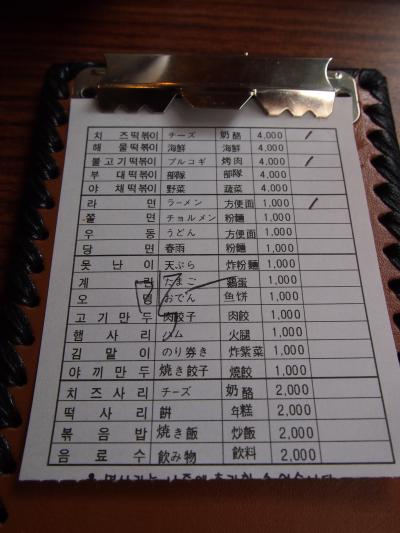 치즈떡볶이 チーズ 奶酪 4,000
해물떡볶이 海鮮 海鮮 4,000
불고기떡볶이 プルコギ 烤肉 4,000
부대떡볶이 部隊 部隊 4,000
야채떡볶이 野菜 蔬菜 4,000
라면 ラーメン 方便面 1,000
쫄면 チョルメン 粉麵 1,000
우동 うどん 方便面 1,000
당면 春雨 粉麵 1,000
못난이 天ぷら 炸粉麵 1,000
계란 たまご 鷄蛋 1,000
오뎅 おでん 鱼饼 1,000
고기만두 肉餃子 肉餃 1,000
햄사리 ハム 火腿 1,000
김말이 のり巻き 炸紫菜 1,000
야끼만두 焼き餃子 燒餃 1,000
치즈사리 チーズ 奶酪 2,000
떡사리 餠 年糕 2,000
볶음밥 焼き飯 炒飯 2,000
음료수 飲み物 飮料 2,000